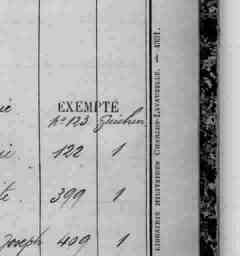 EXEMPTÉ
No 123 Guichen
122 1
te. 399 1
Joseph 409 1
LIBRAIRIE MILITAIRE CHARLES-LAVAUZELLE. — 4321.